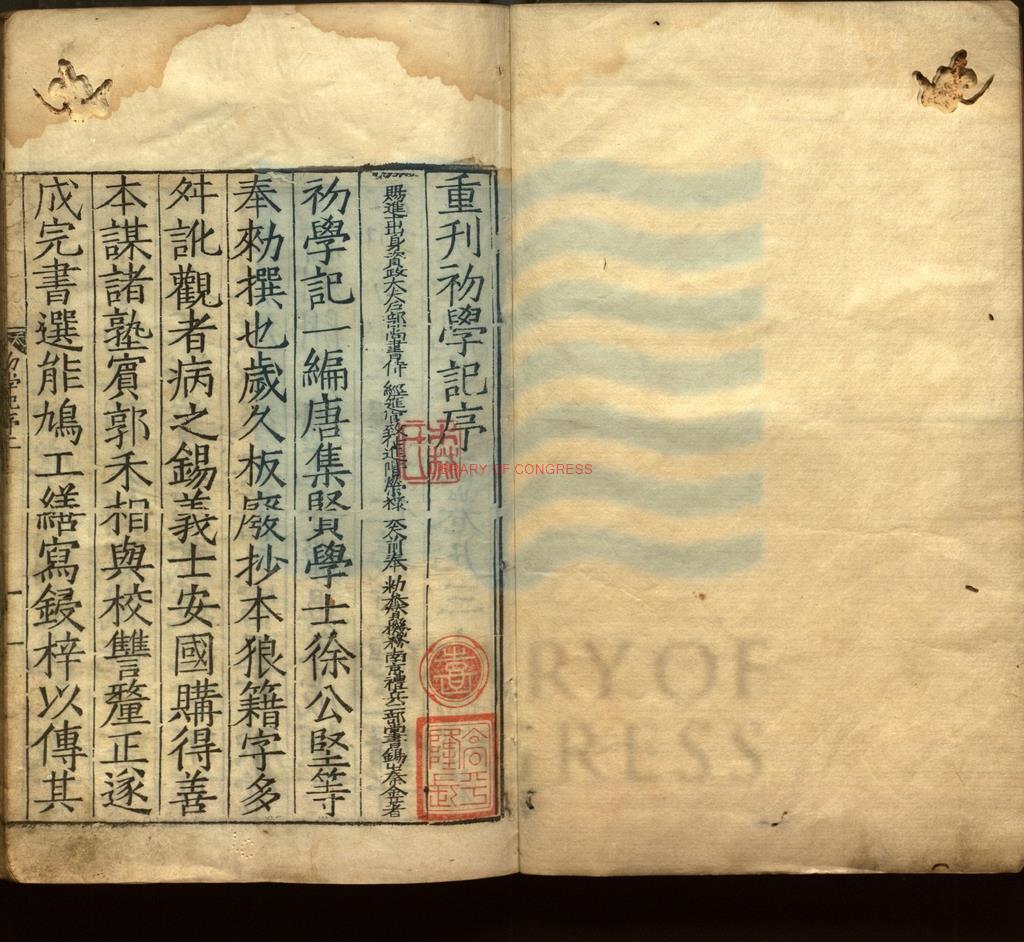 重刊初學記序
賜進士出身資政大夫戶部尚書侍 經筵官致進階榮祿 大夫前奉 勑參贊機務南京禮兵二部尚書錫山秦金著
初學記一編唐集賢學士徐公堅等
奉勑撰也歲久板廢抄本狼籍字多
舛訛觀者病之錫義士安國購得善
本謀諸塾賓郭禾相與校讐釐正遂
成完書選能鳩工繕寫鋟梓以傳其
初學記序
LIBRARY OF CONGRESS